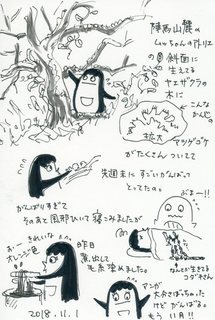 陣馬山麓の
しゅっちゃんのアトリエ
の斜面に
生えてる
ヤエザクラの
木に
こんな
かんじの
拡大
アツゲゴケ
がたくさんついてて
先週末に すごいがんばって
とってたの。
がんばりすぎて
そのあと風邪ひいて寝こみましたが
おまー!!
おー きれいな
オレンジ色
昨日
煮出して
毛糸染めました。
なんとか生きてる
コグチさん
マンガ
大分さぼっちゃった
けど がんばる。
もう11月!!
2018.11.1